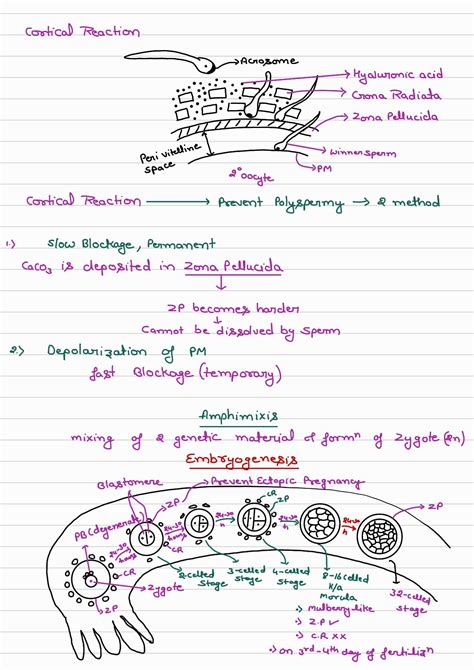 Cortical Reaction
Acrosome
Hyaluronic acid
Crona Radiata
Zona Pellucida
Peri vitelline space
winner sperm
PM
2° oocyte
Cortical Reaction → Prevent Polyspermy → 2 method
1.) Slow Blockage, Permanent
CaCO3 is deposited in Zona Pellucida
ZP becomes harder
Cannot be dissolved by Sperm
2.) Depolarization of PM
fast Blockage (temporary)
Amphimixis
mixing of 2 genetic material & formn of Zygote (2n)
Embryogenesis
Blastomere
Prevent Ectopic Pregnancy
ZP
CR
ZP
ZP
PB (degenerate)
24-30 hours
24-30 hours
24-30
24-30 h
24-30 h
CR
CR
Zygote
ZP
2-celled stage
3-celled stage
4-celled stage
8-16 celled
k/a
morula
32-celled stage
mulberry like
Z.P ✓
C.R XX
on 3rd-4th day of fertilizn